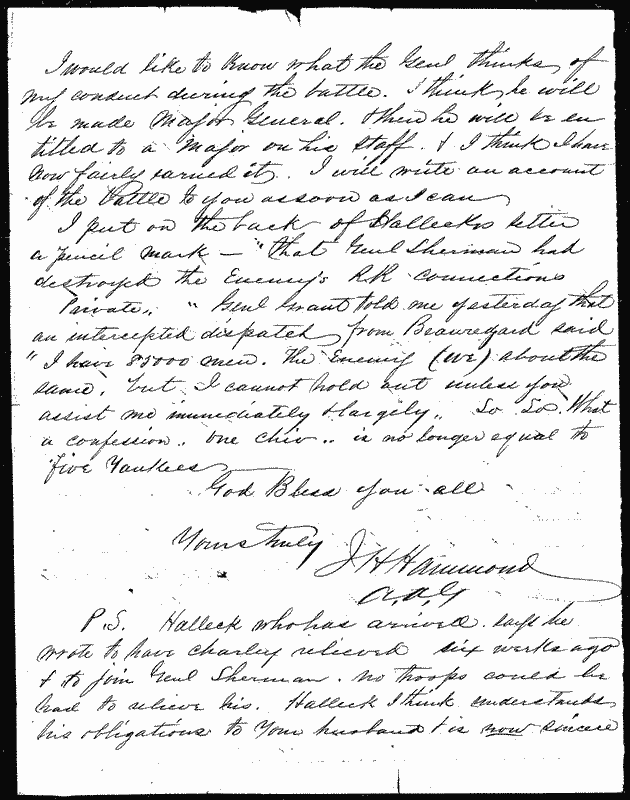 I would like to know what the Genl thinks of
my conduct during the battle. I think he will
be made Major General. then he will be en
titled to a Major on his staff. & I think I have
now fairly earned it. I will write an account
of the Battle to you as soon as I can
I put on the back of Hallecks letter
a pencil mark — "that Genl Sherman had
destroyed the Enemy's RR connections
Private,, " Genl Grant told me yesterday that
an intercepted dispatch from Beauregard said
" I have 85000 men. the Enemy (we) about the
same, but I cannot hold out unless you
assist me immediately & largely,, So So. What
a confession.. one chiv.. is no longer equal to
five Yankees
God Bless you all
Yours truly
J H Hammond
A.A.G
P.S. Halleck who has arrived says he
wrote to have Charley relieved six weeks ago
& to join Genl Sherman. no troops could be
had to relieve his. Halleck I think understands
his obligations to your husband & is now sincere